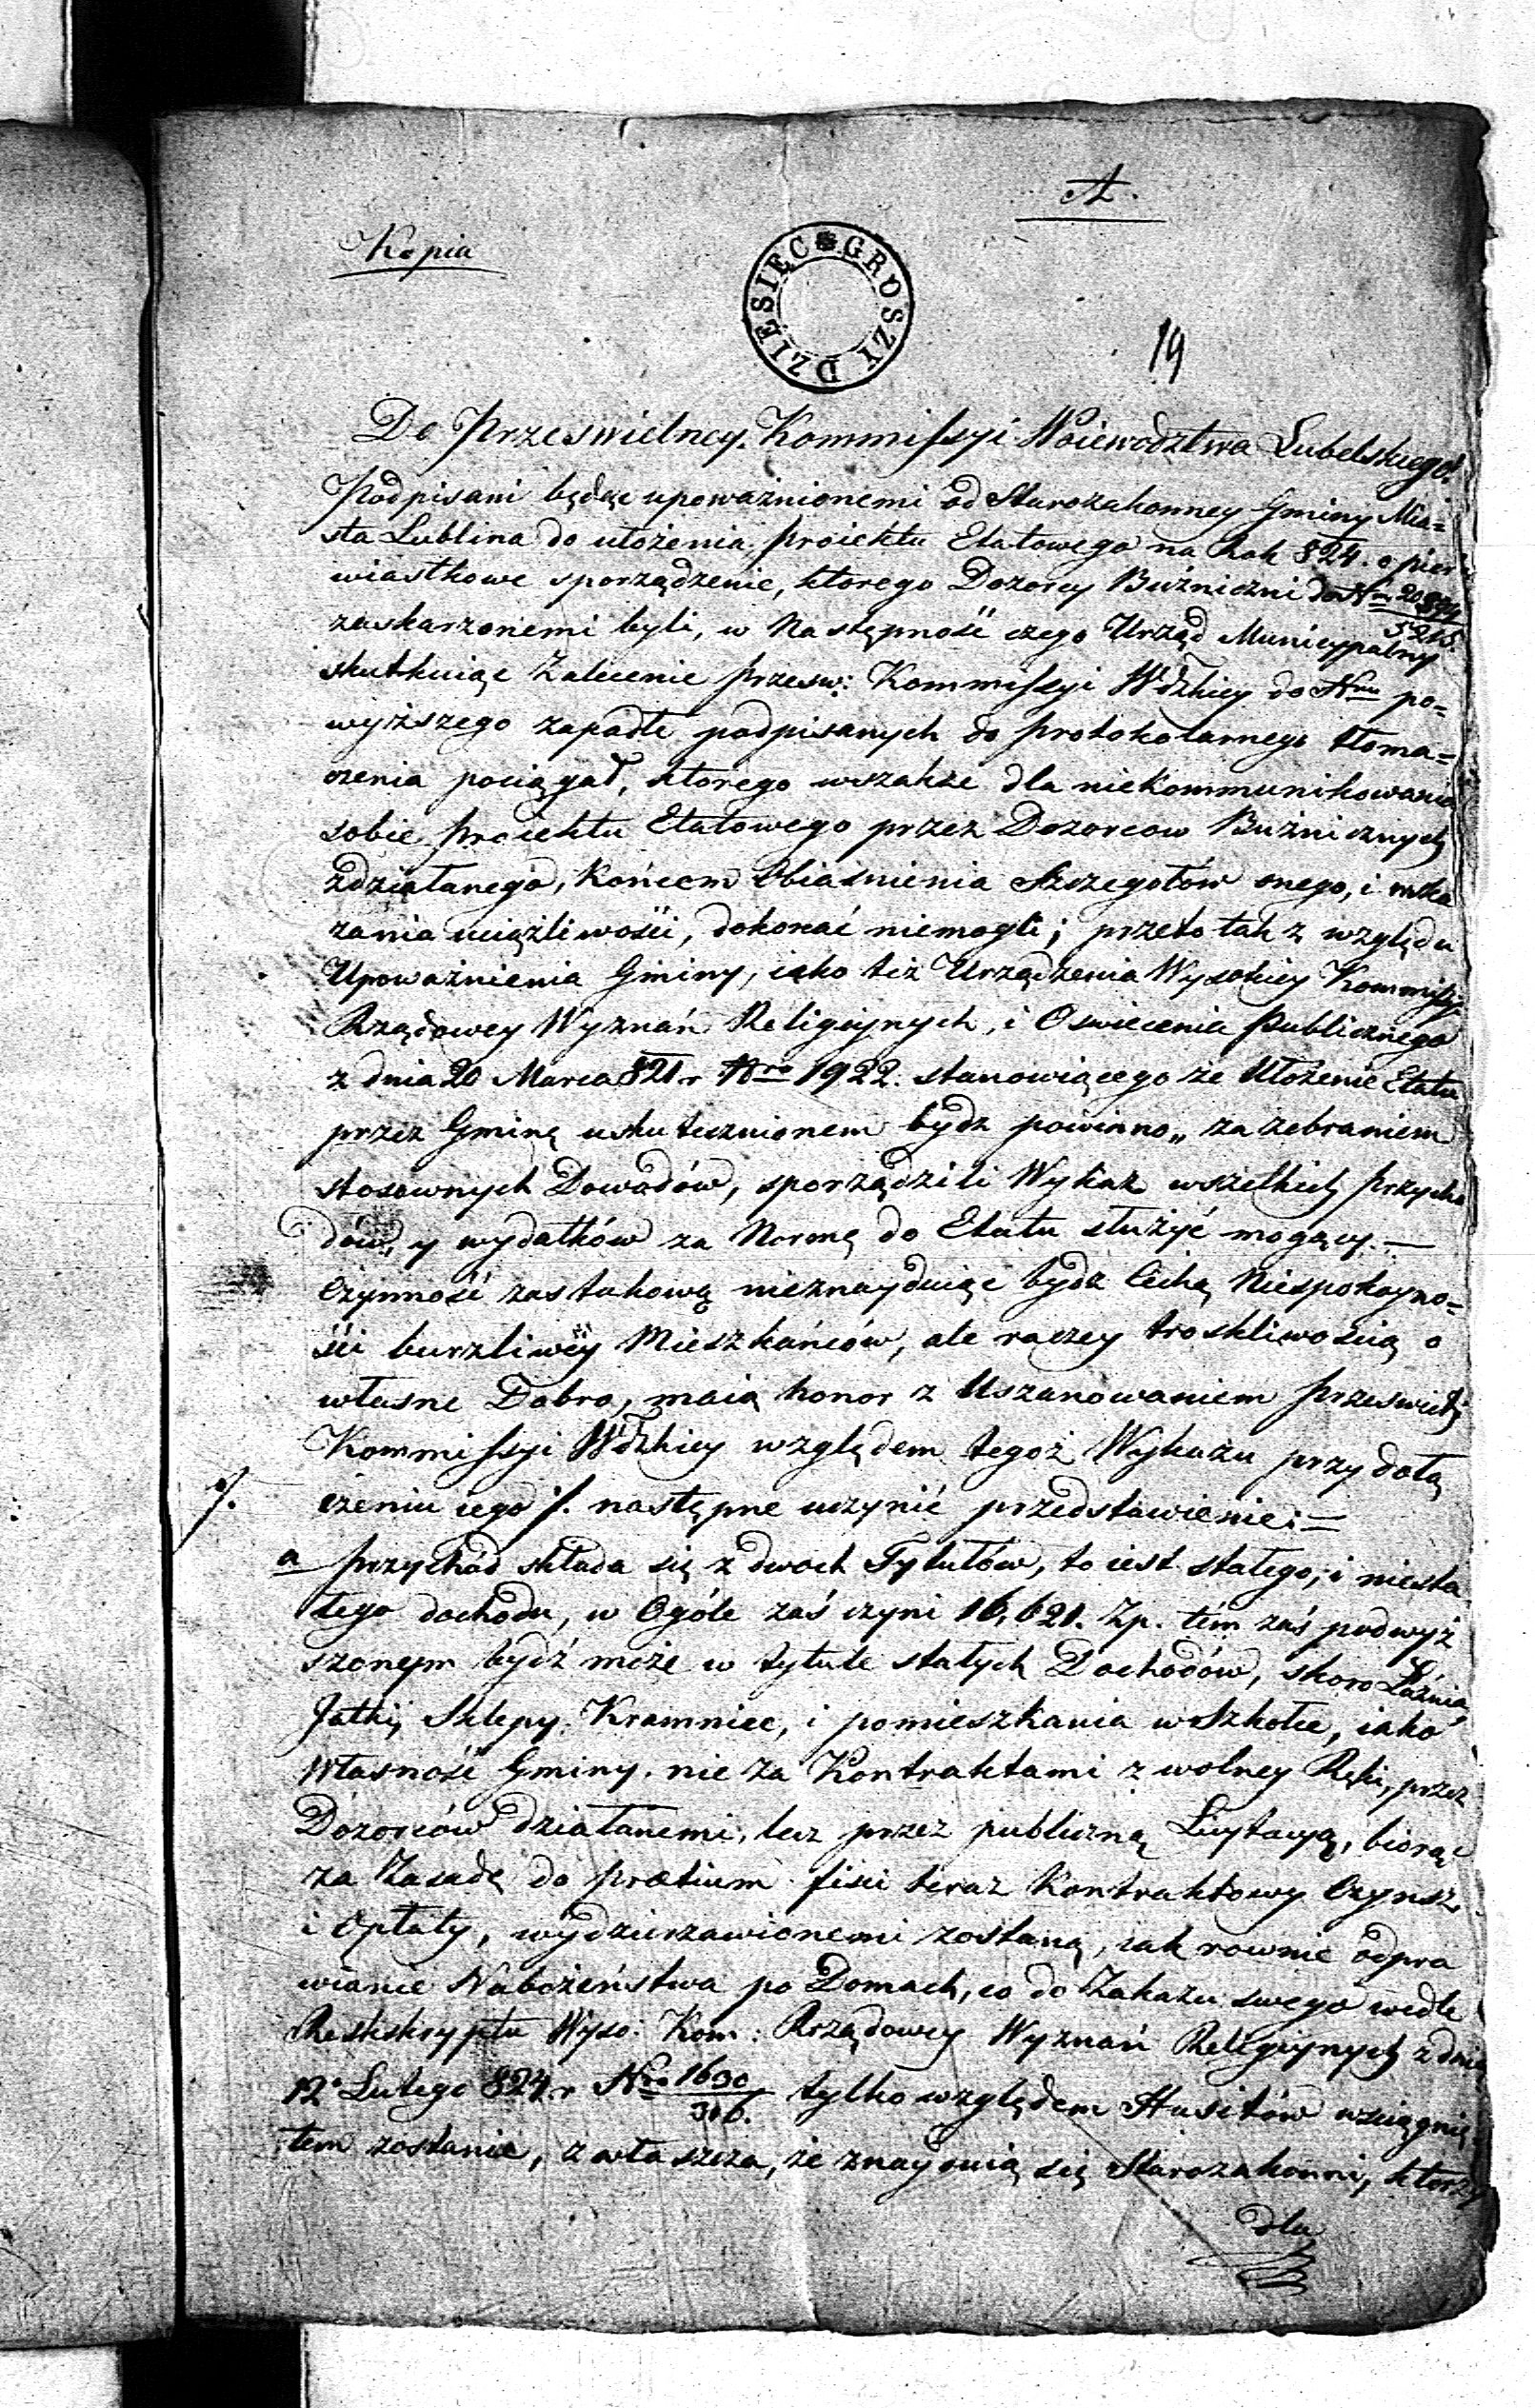 A.
Kopia
DZIESIĘC GROSZY
19
Do Prześwietney Kommissyi Woiewodztwa Lubelskiego!
Podpisani będąc upoważnionemi od Starozakonney Gminy Mia=
sta Lublina do ułożenia proiektu Etatowego na Rok 824. o pier
wiastkowe sporządzenie, ktorego Dozorcy Bużniczni do Nru
zaskarzonemi byli, w Następność czego Urząd Municypalny
skutkuiąc Zalecenie przesw: Kommissyi Wdzkiey do Nru po=
wyższego zapadłe podpisanych do protokolarnego tłoma=
czenia pociągał, ktorego wszakże dla niekommunikowania
sobie proiektu Etatowego przez Dozorcow Bużnicznych
zdziałanego, Końcem Obiasnienia Szczegołów onego, i wska
zania uciążliwości, dokonać niemogli; przeto tak z względu
Upoważnienia Gminy, iako też Urządzenia Wysokiey Kommissyi
Rządowey Wyznań Religiynych, i Oswiecenia Publicznego
z dnia 20 Marca 821 r Nro 1922. stanowiącego że Ułożenie Etatu
przez Gminę uskutecznionem bydz powinno„ za zebraniem
stosownych Dowodów, sporządzili Wykaz wszelkich przycho
dów, y wydatków za Normę do Etatu służyć mogący. —
Czynność zas takową nieznayduiąc bydz Cechą Niespokoyno=
ści burzliwey Mieszkańców, ale raczey troskliwością o
własne Dobro, maią honor z Uszanowaniem przeswietney
Kommissyi Wdzkiey względem tegoż Wykazu przy dołą
czeniu iego ./. następne uczynić przedstawienie: —
./.
a przychód składa się z dwoch Tytułów, to iest stałego, i niesta
łego dochodu, w Ogóle zaś czyni 16,621. Zp. tém zaś podwyż
szonym bydź może w tytule stałych Dochodów, skoro Łaźnia,
Jatki, Sklepy, Kramnice, i pomieszkania w Szkole, iako
Własność Gminy, nie za Kontraktami z wolney Ręki, przez
Dozorców działanemi, lecz przez publiczną Licytacyą, biorąc
za Zasadę do praetium fisci teraz Kontraktowy Czynsz
i Opłaty, wydzierzawionemi zostaną, iak rownie odpra
wianie Nabożeństwa po Domach, co do Zakazu swego wedle
Reskskryptu Wyso: Kom: Rządowey Wyznań Religiynych z dnia
12° Lutego 824 r Nro 1630/316. tylko względem Husitów wsciągnię
tem zostanie, zwłaszcza, że znayduią się Starozakonni, ktorzy
dla